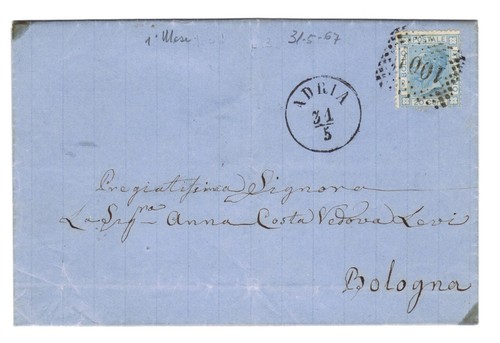 1° Mese 31-5-67
POSTALE
1001
ADRIA
31
5
Pregiatissima Signora
La Sigª Anna Costa Vedova Levi
Bologna